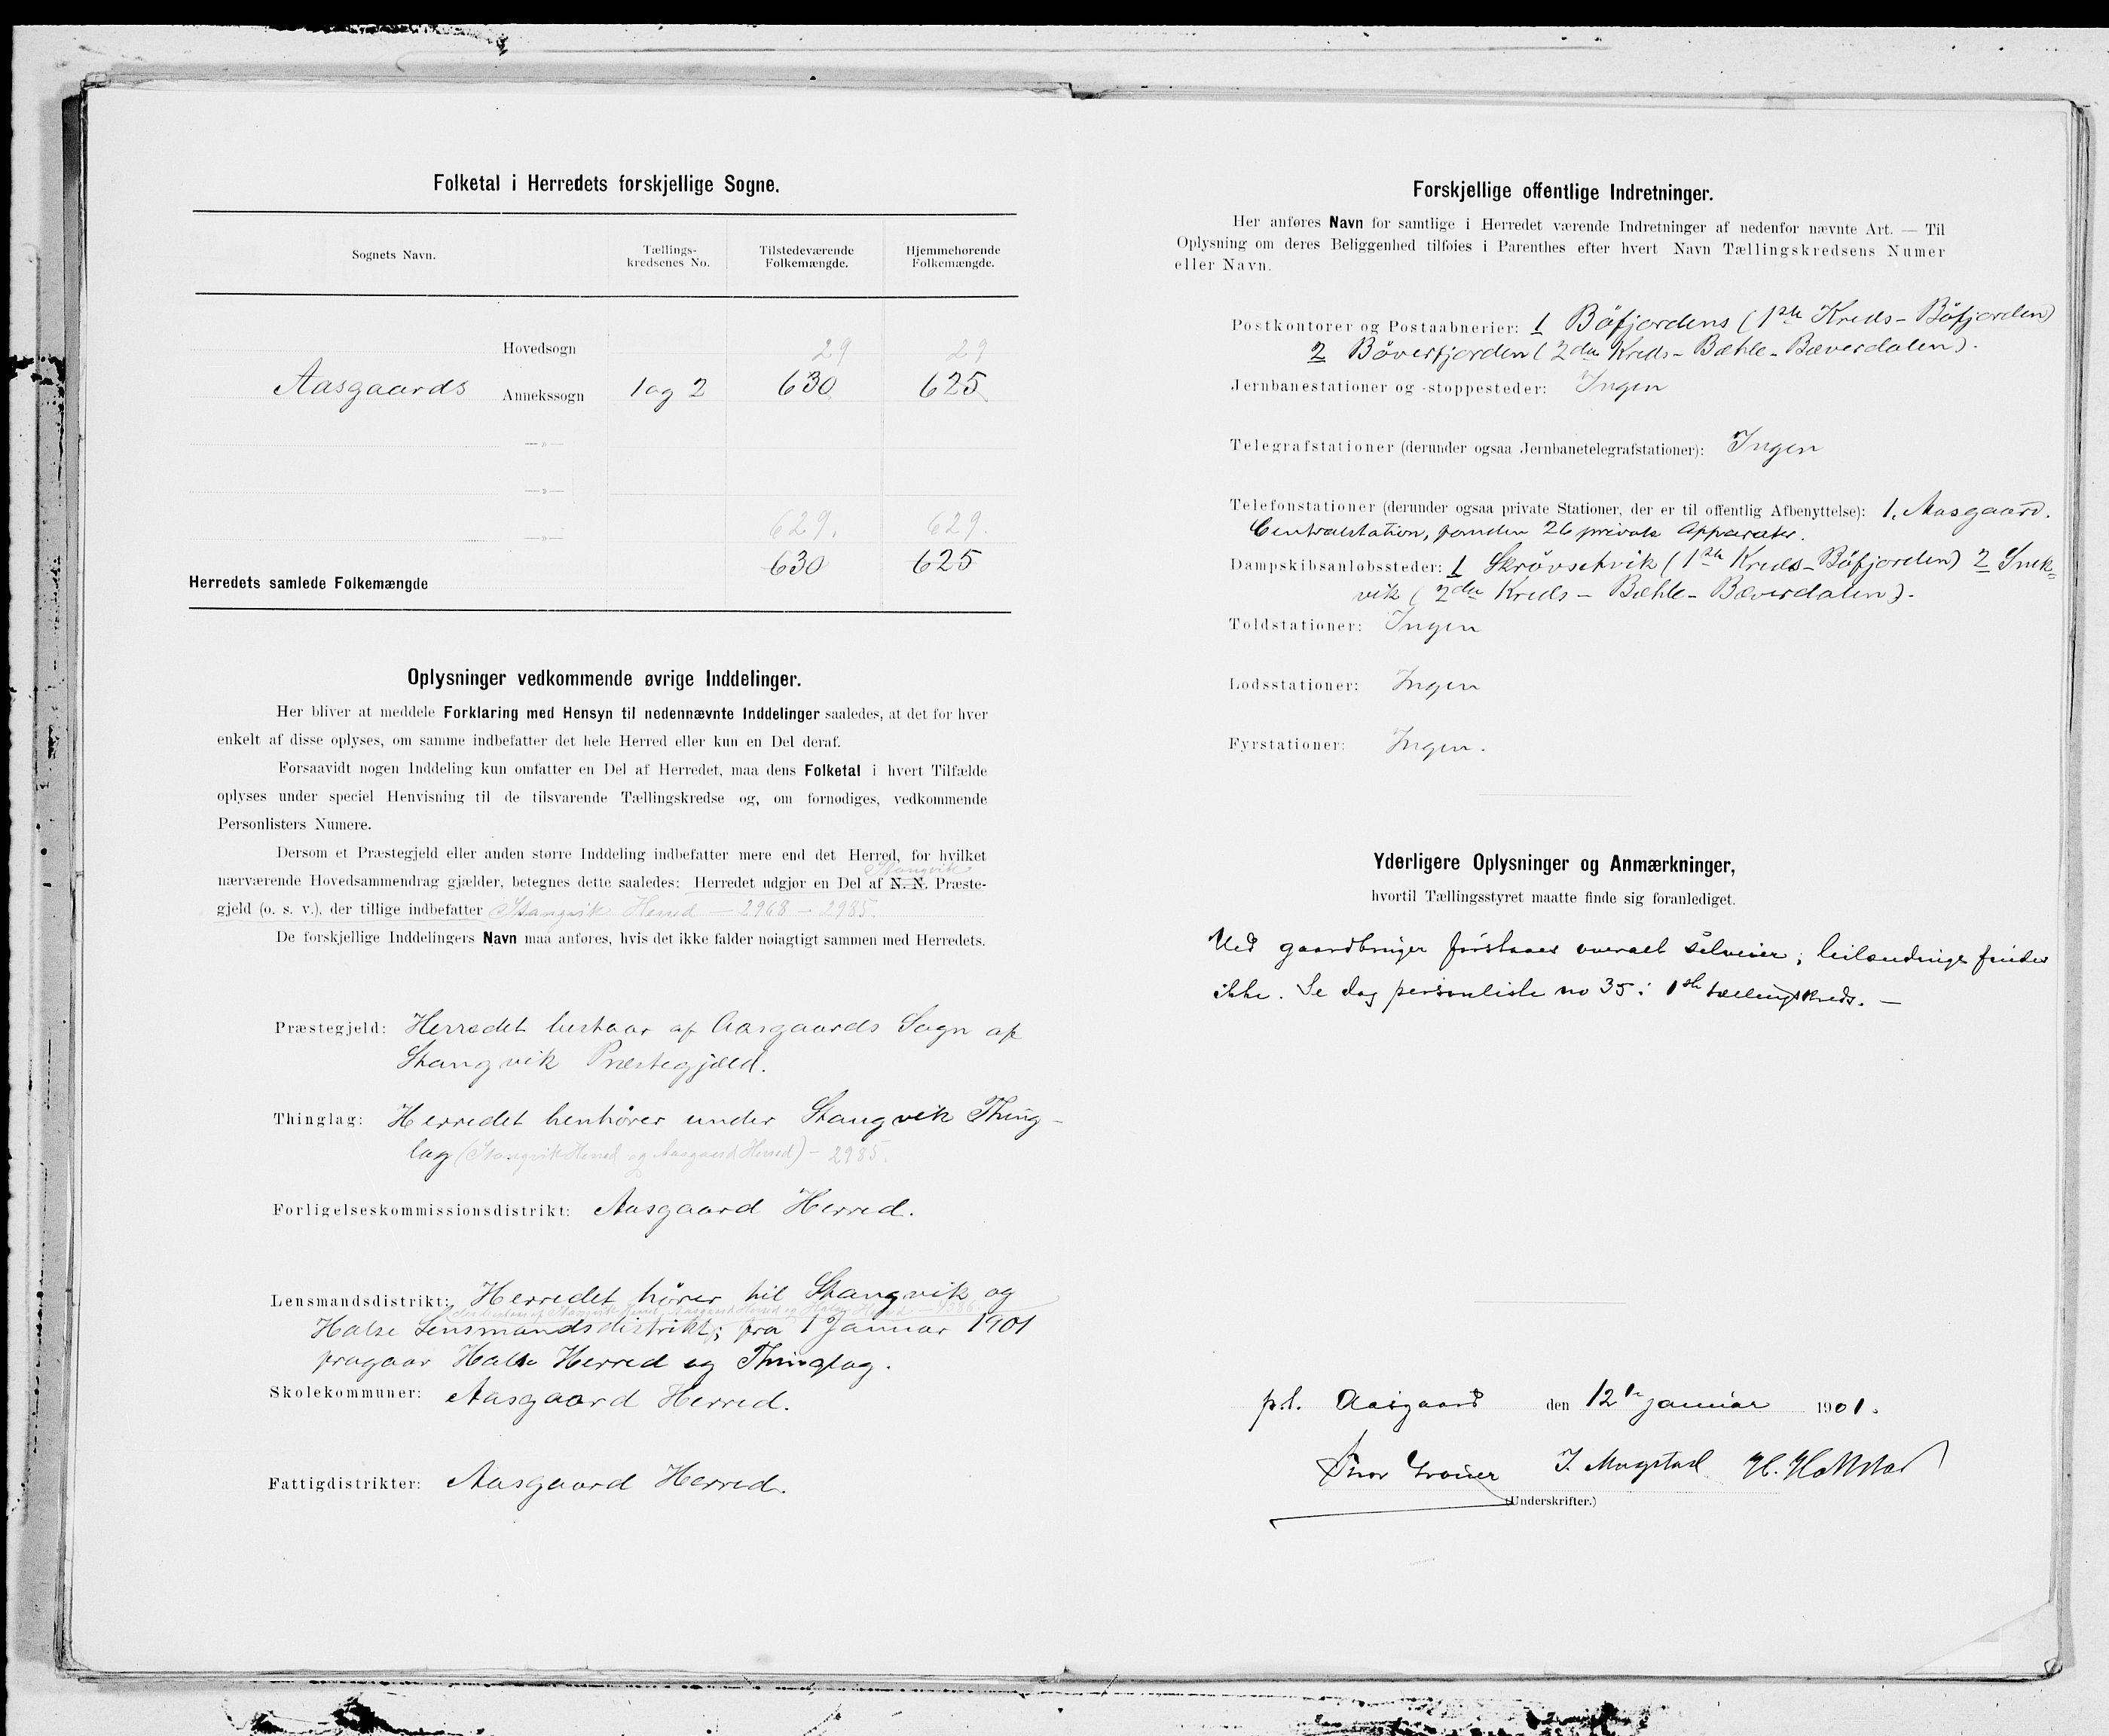 Folketal i Herredets forskjellige Sogne.
Sognets Navn.
Tællings-
kredsenes No.
Tilstedeværende
Folkemængde.
Hjemmehørende
Folkemængde.
Hovedsogn 29 29
Aasgaards Annekssogn 1 og 2 630 625
—»—
—»—
—»— 629. 629.
630 625
Herredets samlede Folkemængde
Oplysninger vedkommende øvrige Inddelinger.
Her bliver at meddele Forklaring med Hensyn til nedennævnte Inddelinger saaledes, at det for hver
enkelt af disse oplyses, om samme indbefatter det hele Herred eller kun en Del deraf.
Forsaavidt nogen Inddeling kun omfatter en Del af Herredet, maa dens Folketal i hvert Tilfælde
oplyses under speciel Henvisning til de tilsvarende Tællingskredse og, om fornødiges, vedkommende
Personlisters Numere.
Dersom et Præstegjeld eller anden større Inddeling indbefatter mere end det Herred, for hvilket
Stangvik
nærværende Hovedsammendrag gjælder, betegnes dette saaledes: Herredet udgjør en Del af N. N. Præste-
gjeld (o. s. v.), der tillige indbefatter Stangvik Herred — 2968 — 2985.
De forskjellige Inddelingers Navn maa anføres, hvis det ikke falder nøiagtigt sammen med Herredets.
Præstegjeld: Herredet bestaar af Aasgaards Sogn af
Stangvik Præstegjæld.
Thinglag: Herredet henhører under Stangvik Thing-
lag (Stangvik Herred og Aasgaard Herred) – 2985.
Forligelseskommissionsdistrikt: Aasgaard Herred.
Lensmandsdistrikt: Herredet hører til Stangvik og
der bestaar af Stangvik Herred, Aasgaard Herred og Halse Herred — 4386
Halse Lensmandsdistrikt; fra 1 Januar 1901
fragaar Halse Herred og Thinglag.
Skolekommuner: Aasgaard Herred.
Fattigdistrikter: Aasgaard Herred.
Forskjellige offentlige Indretninger.
Her anføres Navn for samtlige i Herredet værende Indretninger af nedenfor nævnte Art. — Til
Oplysning om deres Beliggenhed tilføies i Parenthes efter hvert Navn Tællingskredsens Numer
eller Navn.
Postkontorer og Postaabnerier: 1 Böfjordens (1ste Kreds – Böfjorden)
2 Böverfjorden (2den Kreds – Bæhle – Bæverdalen).
Jernbanestationer og -stoppesteder: Ingen
Telegrafstationer (derunder ogsaa Jernbanetelegrafstationer): Ingen
Telefonstationer (derunder ogsaa private Stationer, der er til offentlig Afbenyttelse): 1. Aasgaard.
Centralstation, foruden 26 private Apparater.
Dampskibsanløbssteder: 1 Skrövsetvik (1ste Kreds – Böfjorden) 2 Snek-
vik (2den Kreds – Bæhle – Bæverdalen).
Toldstationer: Ingen
Lodsstationer: Ingen
Fyrstationer: Ingen.
Yderligere Oplysninger og Anmærkninger,
hvortil Tællingsstyret maatte finde sig foranlediget.
Ved gaardbruger forstaaes overalt selveier; leilændinge findes
ikke. Se dog personliste no 35 i 1ste tællingskreds. —
p.t. Aasgaard den 12te januar 1901.
J. Mogstad
(Underskrifter.)